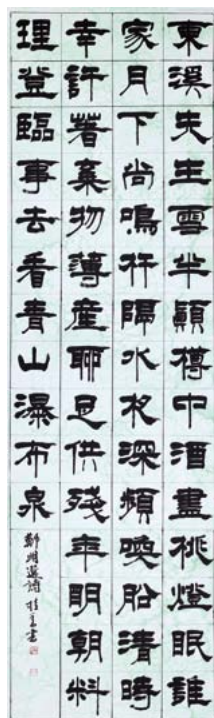 東溪先生雪半顛樽中酒盡挑燈眠誰
家月下尚鳴杵隔水夜深頻喚船清時
幸許著棄物薄產聊足供殘年明朝料
理登臨事去看青山瀑布泉